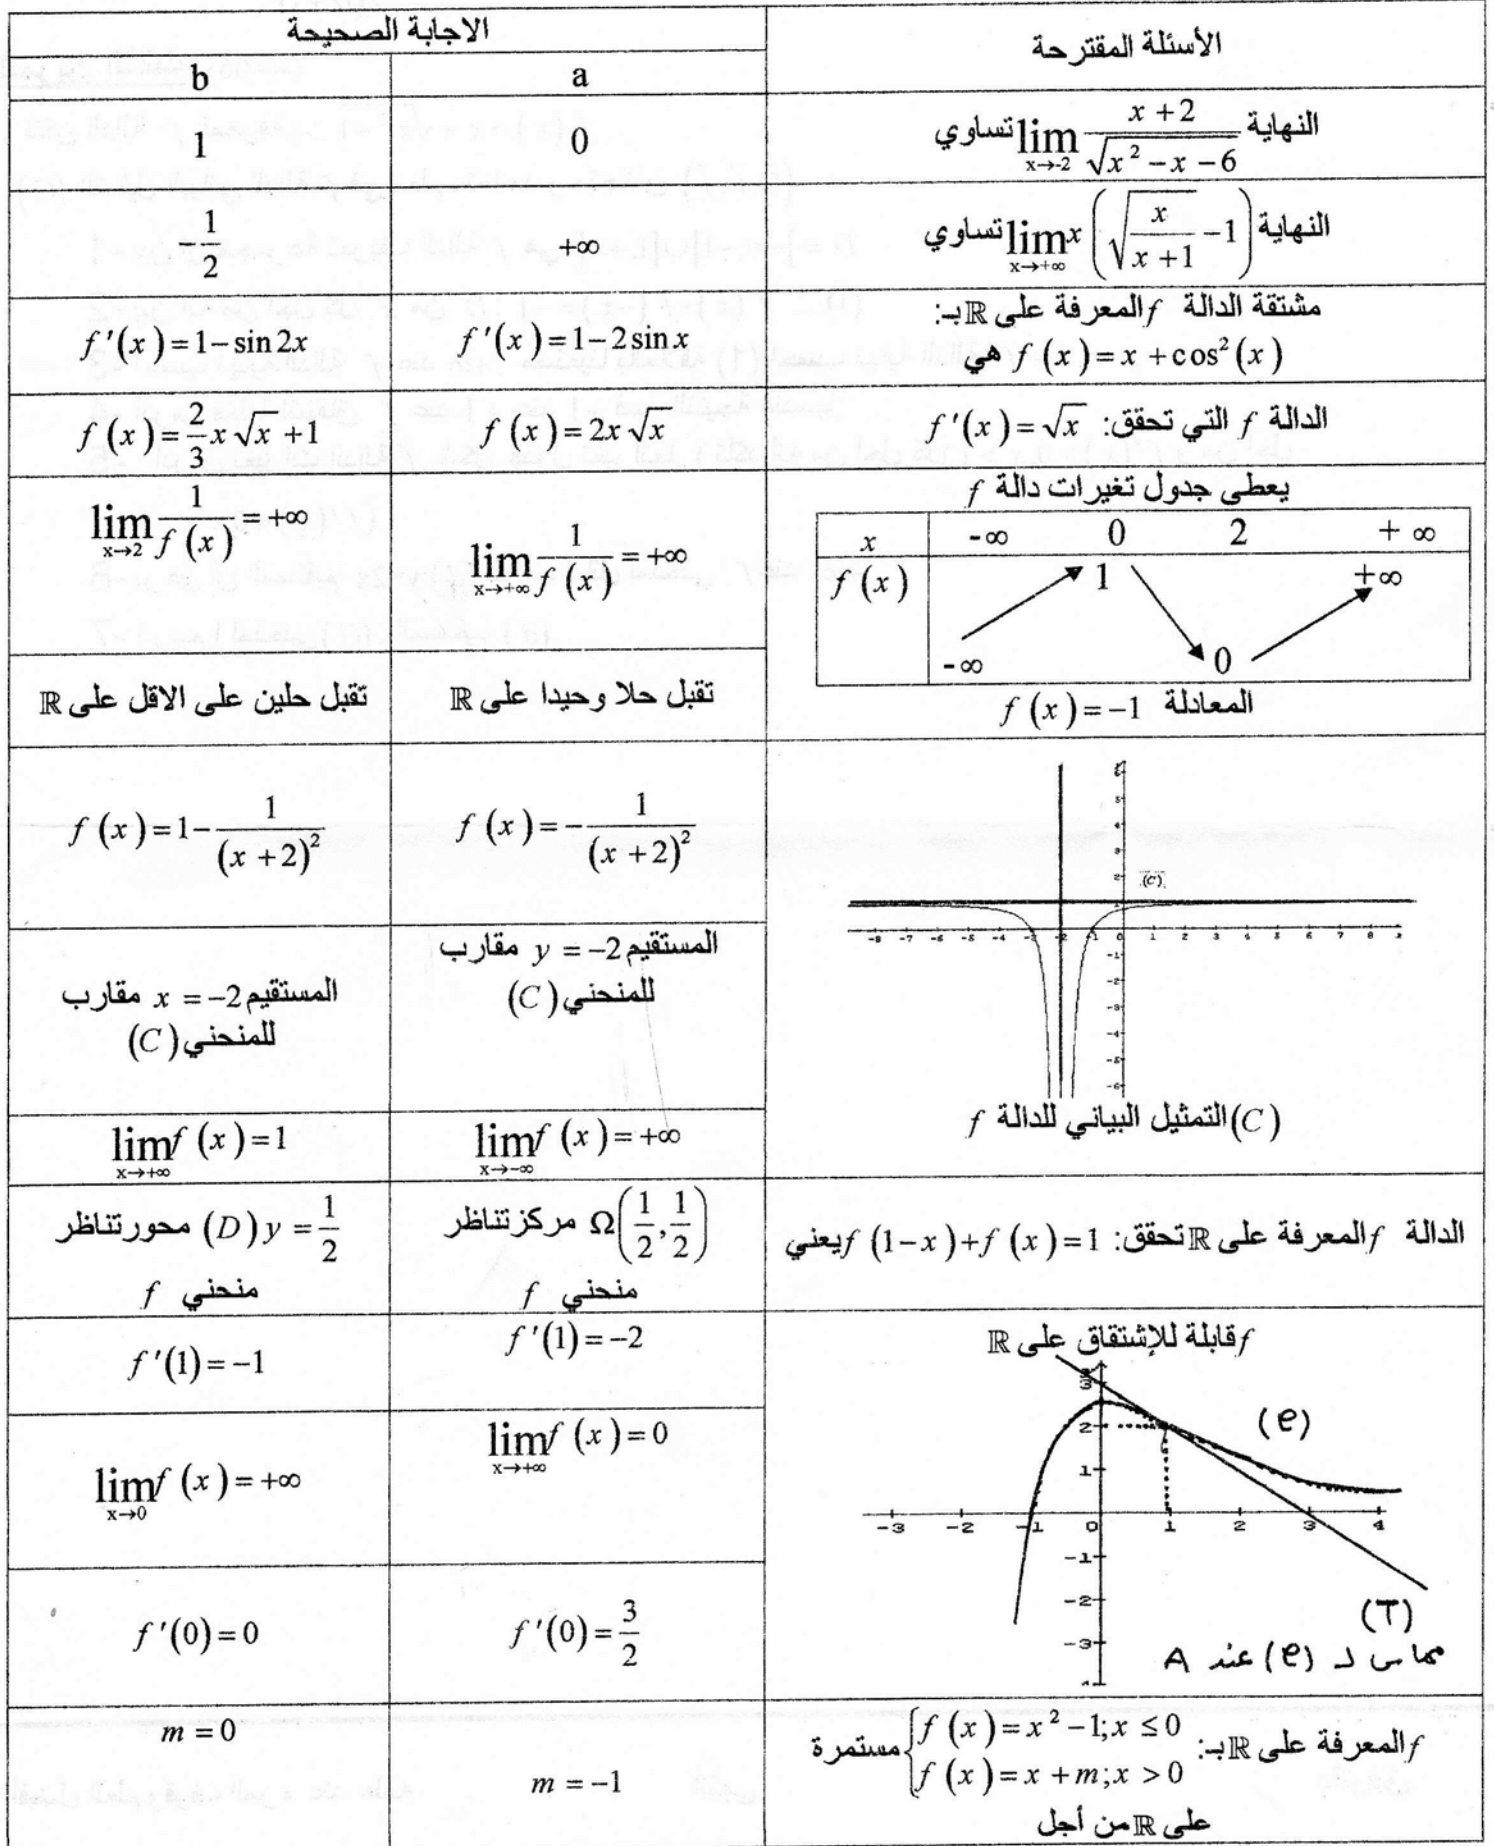 الأسئلة المقترحة
الاجابة الصحيحة
a
b
النهاية $\lim_{x \to -2} \frac{x+2}{\sqrt{x^2-x-6}}$ تساوي
0
1
النهاية $\lim_{x \to +\infty} x\left(\sqrt{\frac{x}{x+1}}-1\right)$ تساوي
+∞
$-\frac{1}{2}$
مشتقة الدالة f المعرفة على ℝ بـ:
f(x)=x+cos²(x) هي
f'(x)=1-2sin x
f'(x)=1-sin 2x
الدالة f التي تحقق: f'(x)=√x
f(x)=2x√x
$f(x)=\frac{2}{3}x\sqrt{x}+1$
يعطى جدول تغيرات دالة f
x -∞ 0 2 +∞
f(x) -∞ 1 0 +∞
المعادلة f(x)=-1
$\lim_{x \to +\infty} \frac{1}{f(x)}=+\infty$
$\lim_{x \to 2} \frac{1}{f(x)}=+\infty$
تقبل حلا وحيدا على ℝ
تقبل حلين على الاقل على ℝ
(C)
6
5
4
3
2
-8 -7 -6 -5 -4 -3 -2 -1 0 1 2 3 4 5 6 7 8
-1
-2
-3
-4
-5
-6
(C) التمثيل البياني للدالة f
$f(x)=-\frac{1}{(x+2)^2}$
$f(x)=1-\frac{1}{(x+2)^2}$
المستقيم y=-2 مقارب
للمنحني (C)
المستقيم x=-2 مقارب
للمنحني (C)
$\lim_{x \to -\infty} f(x)=+\infty$
$\lim_{x \to +\infty} f(x)=1$
الدالة f المعرفة على ℝ تحقق: f(1-x)+f(x)=1 يعني
$\Omega\left(\frac{1}{2},\frac{1}{2}\right)$ مركز تناظر
منحني f
$(D) y=\frac{1}{2}$ محور تناظر
منحني f
f قابلة للإشتقاق على ℝ
3
2
1
-3 -2 -1 0 1 2 3 4
-1
-2
-3
(e)
(T)
مماس لـ (e) عند A
f'(1)=-2
f'(1)=-1
$\lim_{x \to +\infty} f(x)=0$
$\lim_{x \to 0} f(x)=+\infty$
$f'(0)=\frac{3}{2}$
f'(0)=0
f المعرفة على ℝ بـ: $\begin{cases} f(x)=x^2-1; x \le 0 \\ f(x)=x+m; x>0 \end{cases}$ مستمرة
على ℝ من أجل
m=-1
m=0